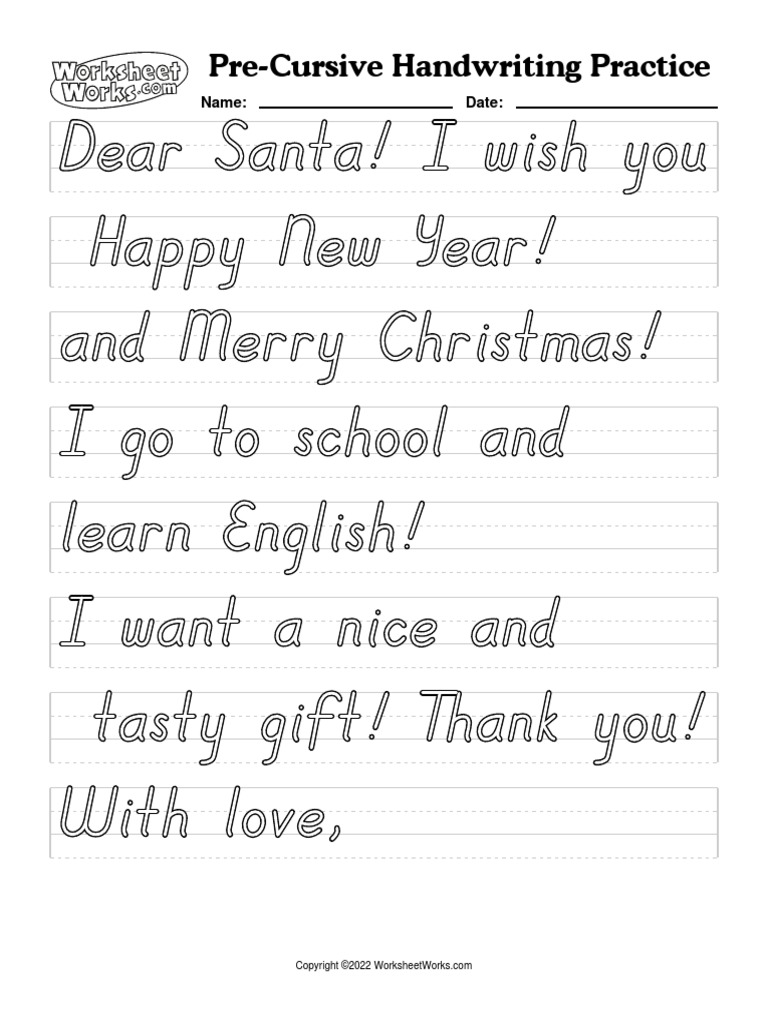 Worksheet Works.com
Pre-Cursive Handwriting Practice
Name: Date:
Dear Santa! I wish you
Happy New Year!
and Merry Christmas!
I go to school and
learn English!
I want a nice and
tasty gift! Thank you!
With love,
Copyright ©2022 WorksheetWorks.com